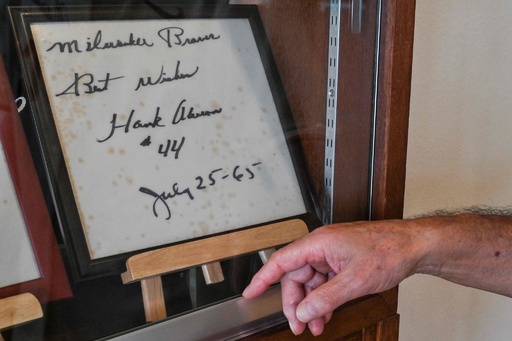 Milwaukee Braves
Best Wishes
Hank Aaron
# 44
July 25-65